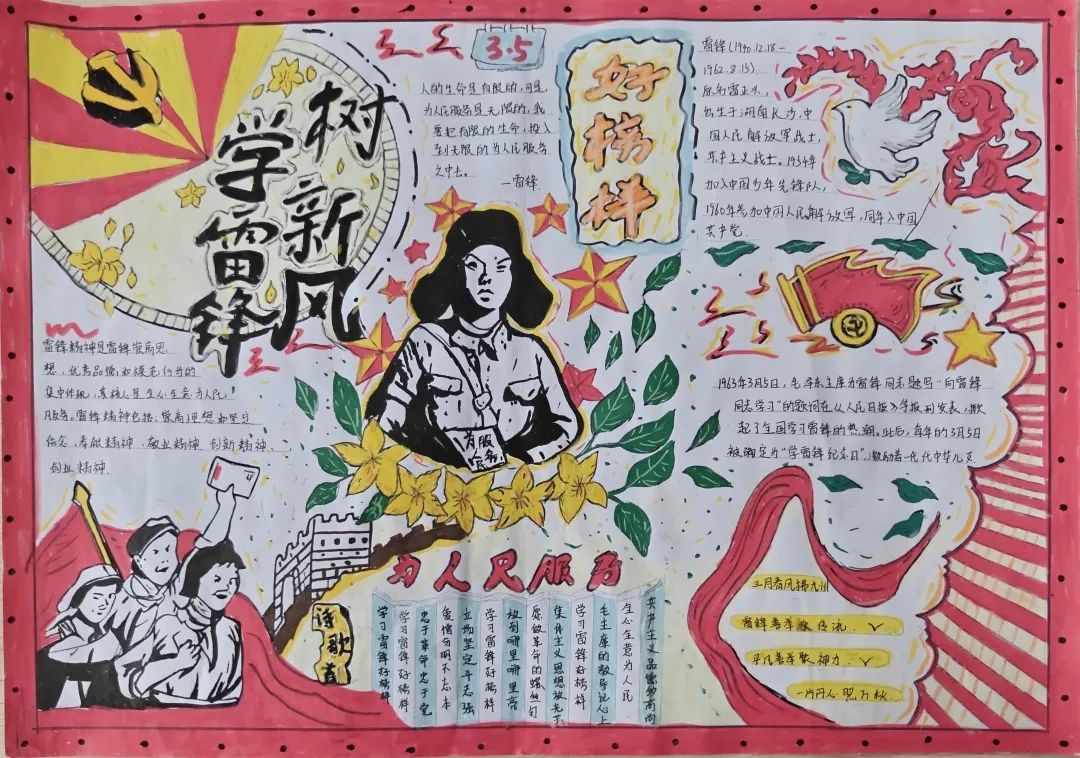 学雷锋
树新风
3.5
人的生命是有限的，可是，
为人民服务是无限的，我
要把有限的生命，投入
到无限的为人民服务
之中去。
—雷锋
好榜样
雷锋(1940.12.18—
1962.8.15)
原名雷正兴，
出生于湖南长沙，中
国人民解放军战士，
共产主义战士。1954年
加入中国少年先锋队，
1960年参加中国人民解放军，同年入中国
共产党.
雷锋精神是雷锋崇高思
想，优秀品德，和模范行为的
集中体现，其核心是全心全意为人民
服务。雷锋精神包括：崇高理想和坚定
信念、奉献精神、敬业精神、创新精神、
创业精神
1963年3月5日，毛泽东主席为雷锋同志题写“向雷锋
同志学习”的歌词在《人民日报》等报刊发表，掀
起了全国学习雷锋的热潮。此后，每年的3月5日
被确定为“学雷锋纪念日”，激励着一代代中华儿女
为人民服务
为人民服务
诗歌
学习雷锋好榜样
忠于革命忠于党
爱憎分明不忘本
立场坚定斗志强
学习雷锋好榜样
放到哪里哪里亮
愿做革命的螺丝钉
集体主义思想放光芒
学习雷锋好榜样
毛主席的教导记心上
全心全意为人民
共产主义品德多高尚
三月春风拂九州
雷锋善举永传流.
平凡善举聚神力.
一片丹心照万秋.